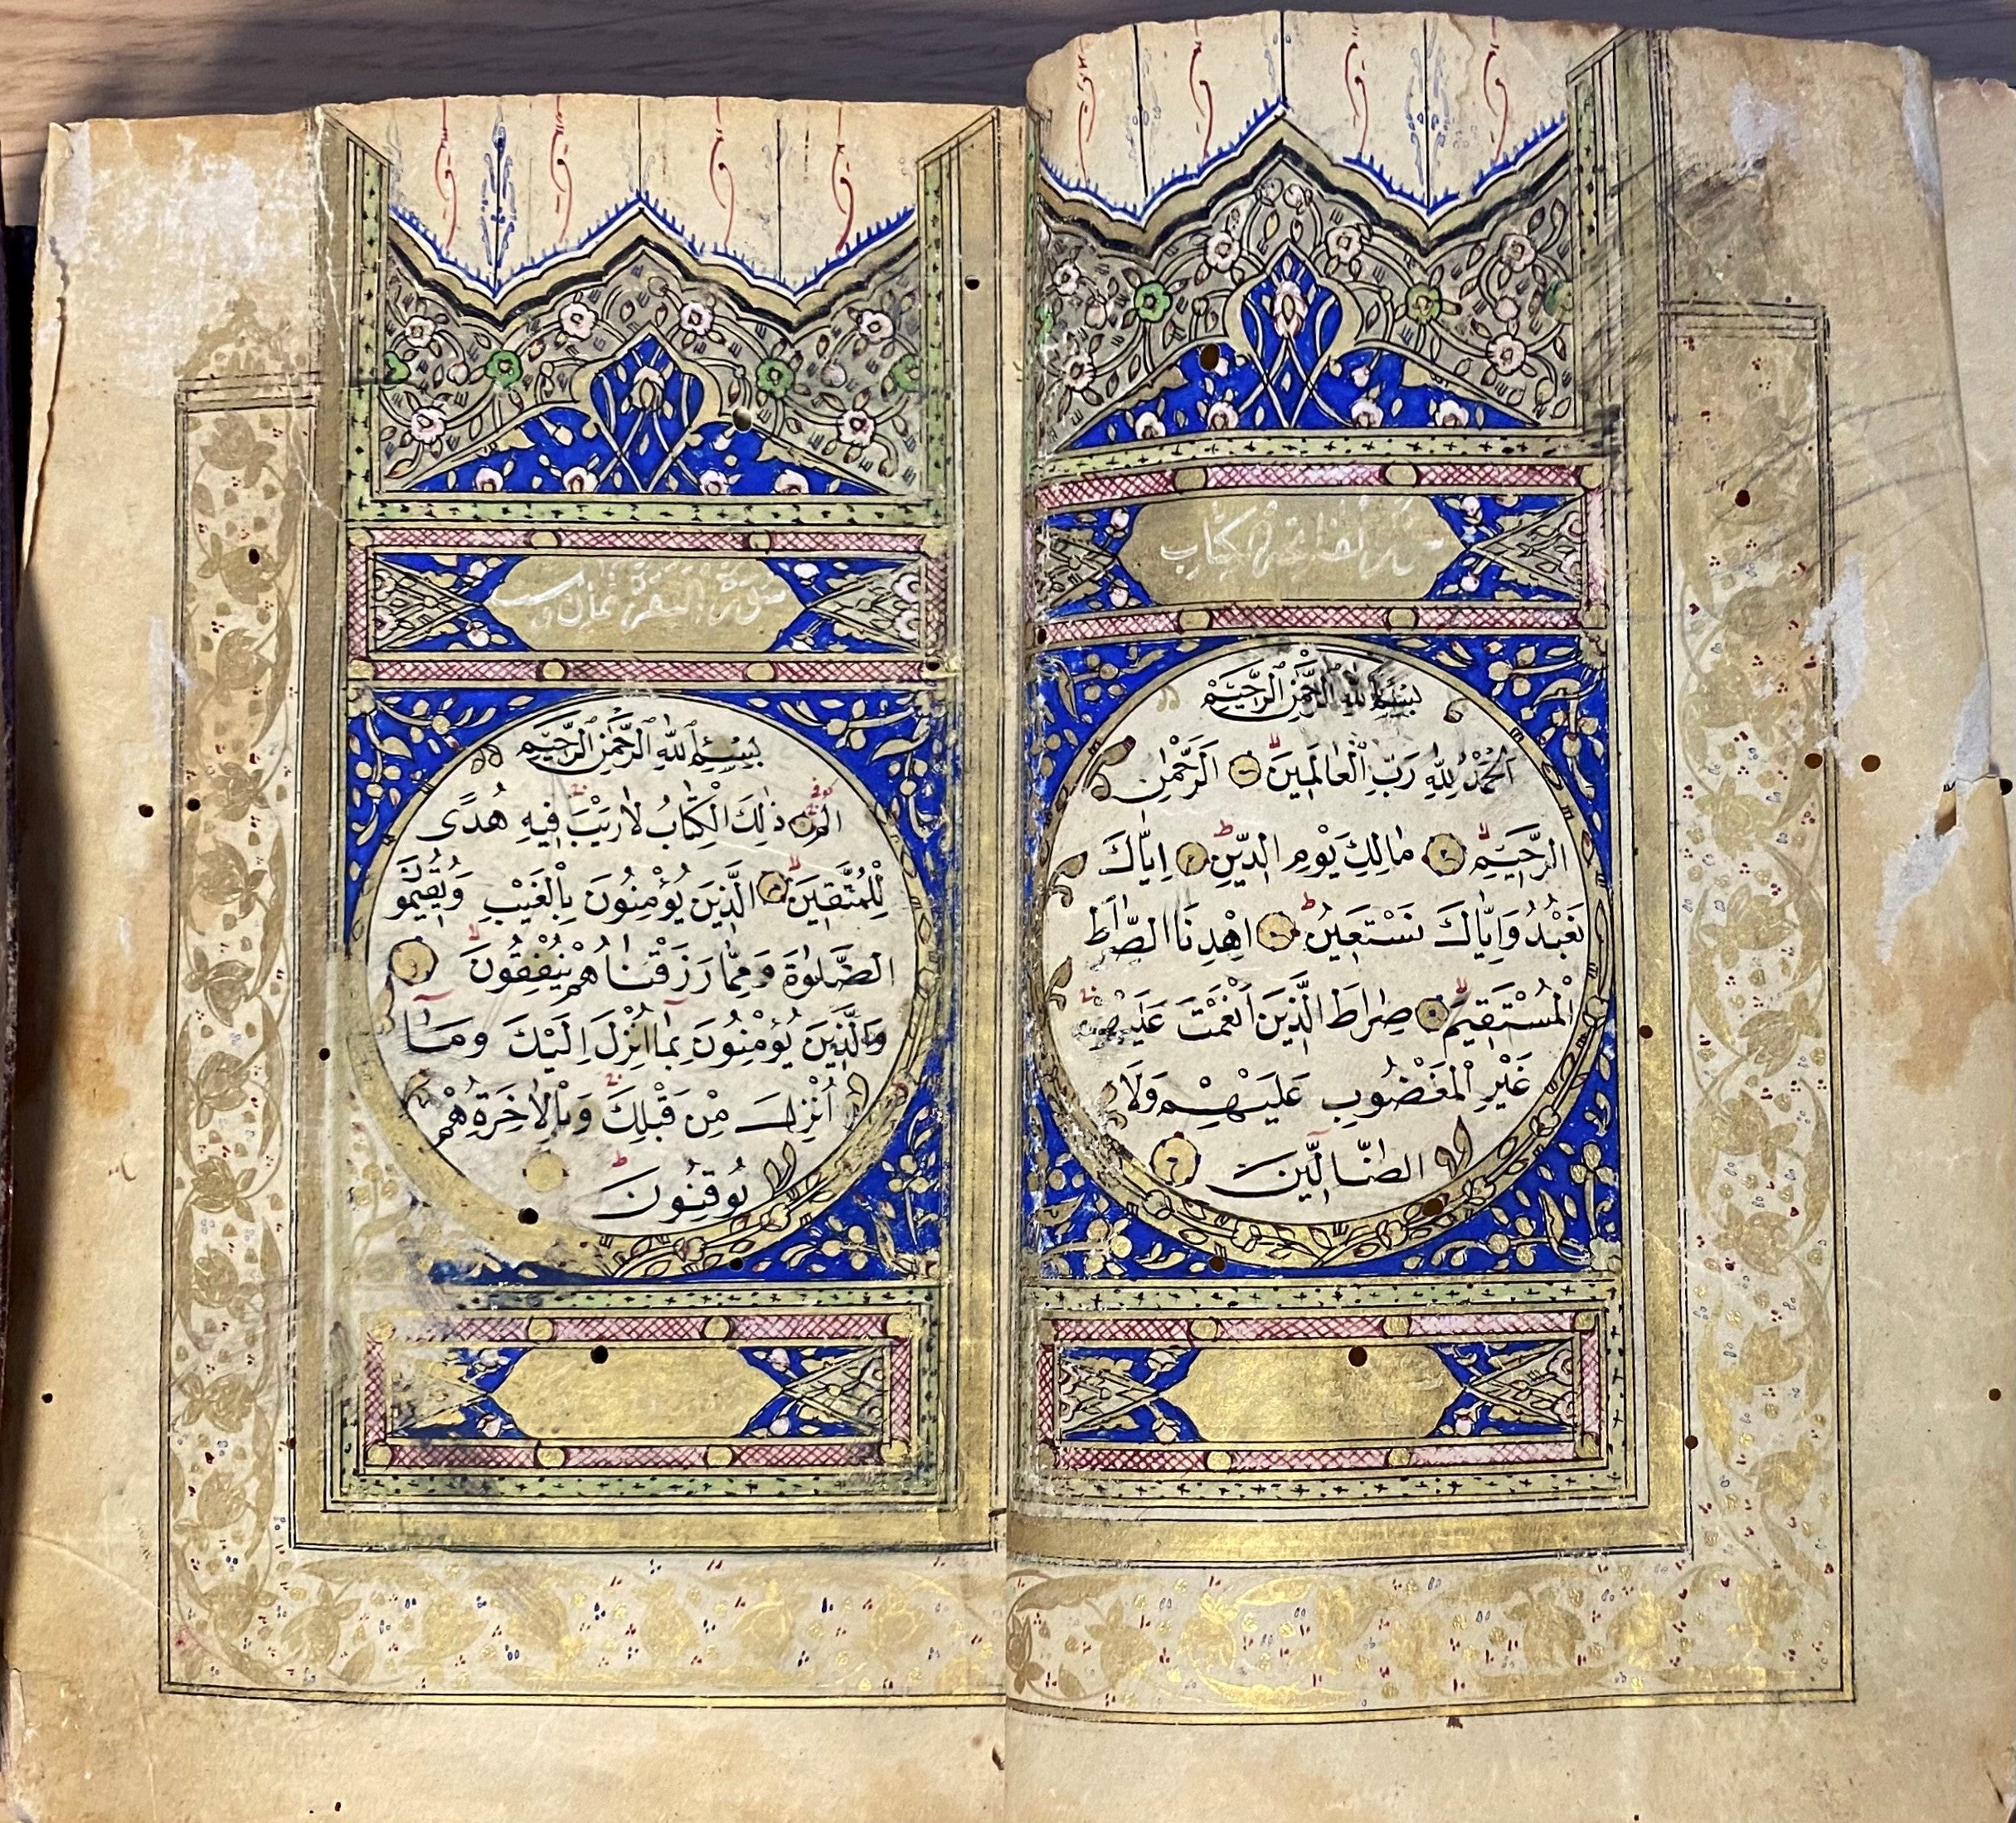 سورة الفاتحة الكتاب
بسم الله الرحمن الرحيم
اَلْحَمْدُ لِلّٰهِ رَبِّ الْعَالَمِينَ اَلرَّحْمٰنِ
الرَّحِيمِ مَالِكِ يَوْمِ الدِّينِ اِيَّاكَ
نَعْبُدُ وَاِيَّاكَ نَسْتَعِينُ اِهْدِنَا الصِّرَاطَ
الْمُسْتَقِيمَ صِرَاطَ الَّذِينَ اَنْعَمْتَ عَلَيْهِمْ
غَيْرِ الْمَغْضُوبِ عَلَيْهِمْ وَلَا
الضَّالِّينَ
سورة البقرة ثمان و
بِسْمِ اللهِ الرَّحْمٰنِ الرَّحِيمِ
الم ذٰلِكَ الْكِتَابُ لَا رَيْبَ فِيهِ هُدًى
لِلْمُتَّقِينَ الَّذِينَ يُؤْمِنُونَ بِالْغَيْبِ وَيُقِيمُونَ
الصَّلٰوةَ وَمِمَّا رَزَقْنَاهُمْ يُنْفِقُونَ
وَالَّذِينَ يُؤْمِنُونَ بِمَا اُنْزِلَ اِلَيْكَ وَمَا
اُنْزِلَ مِنْ قَبْلِكَ وَبِالْاٰخِرَةِ هُمْ
يُوقِنُونَ